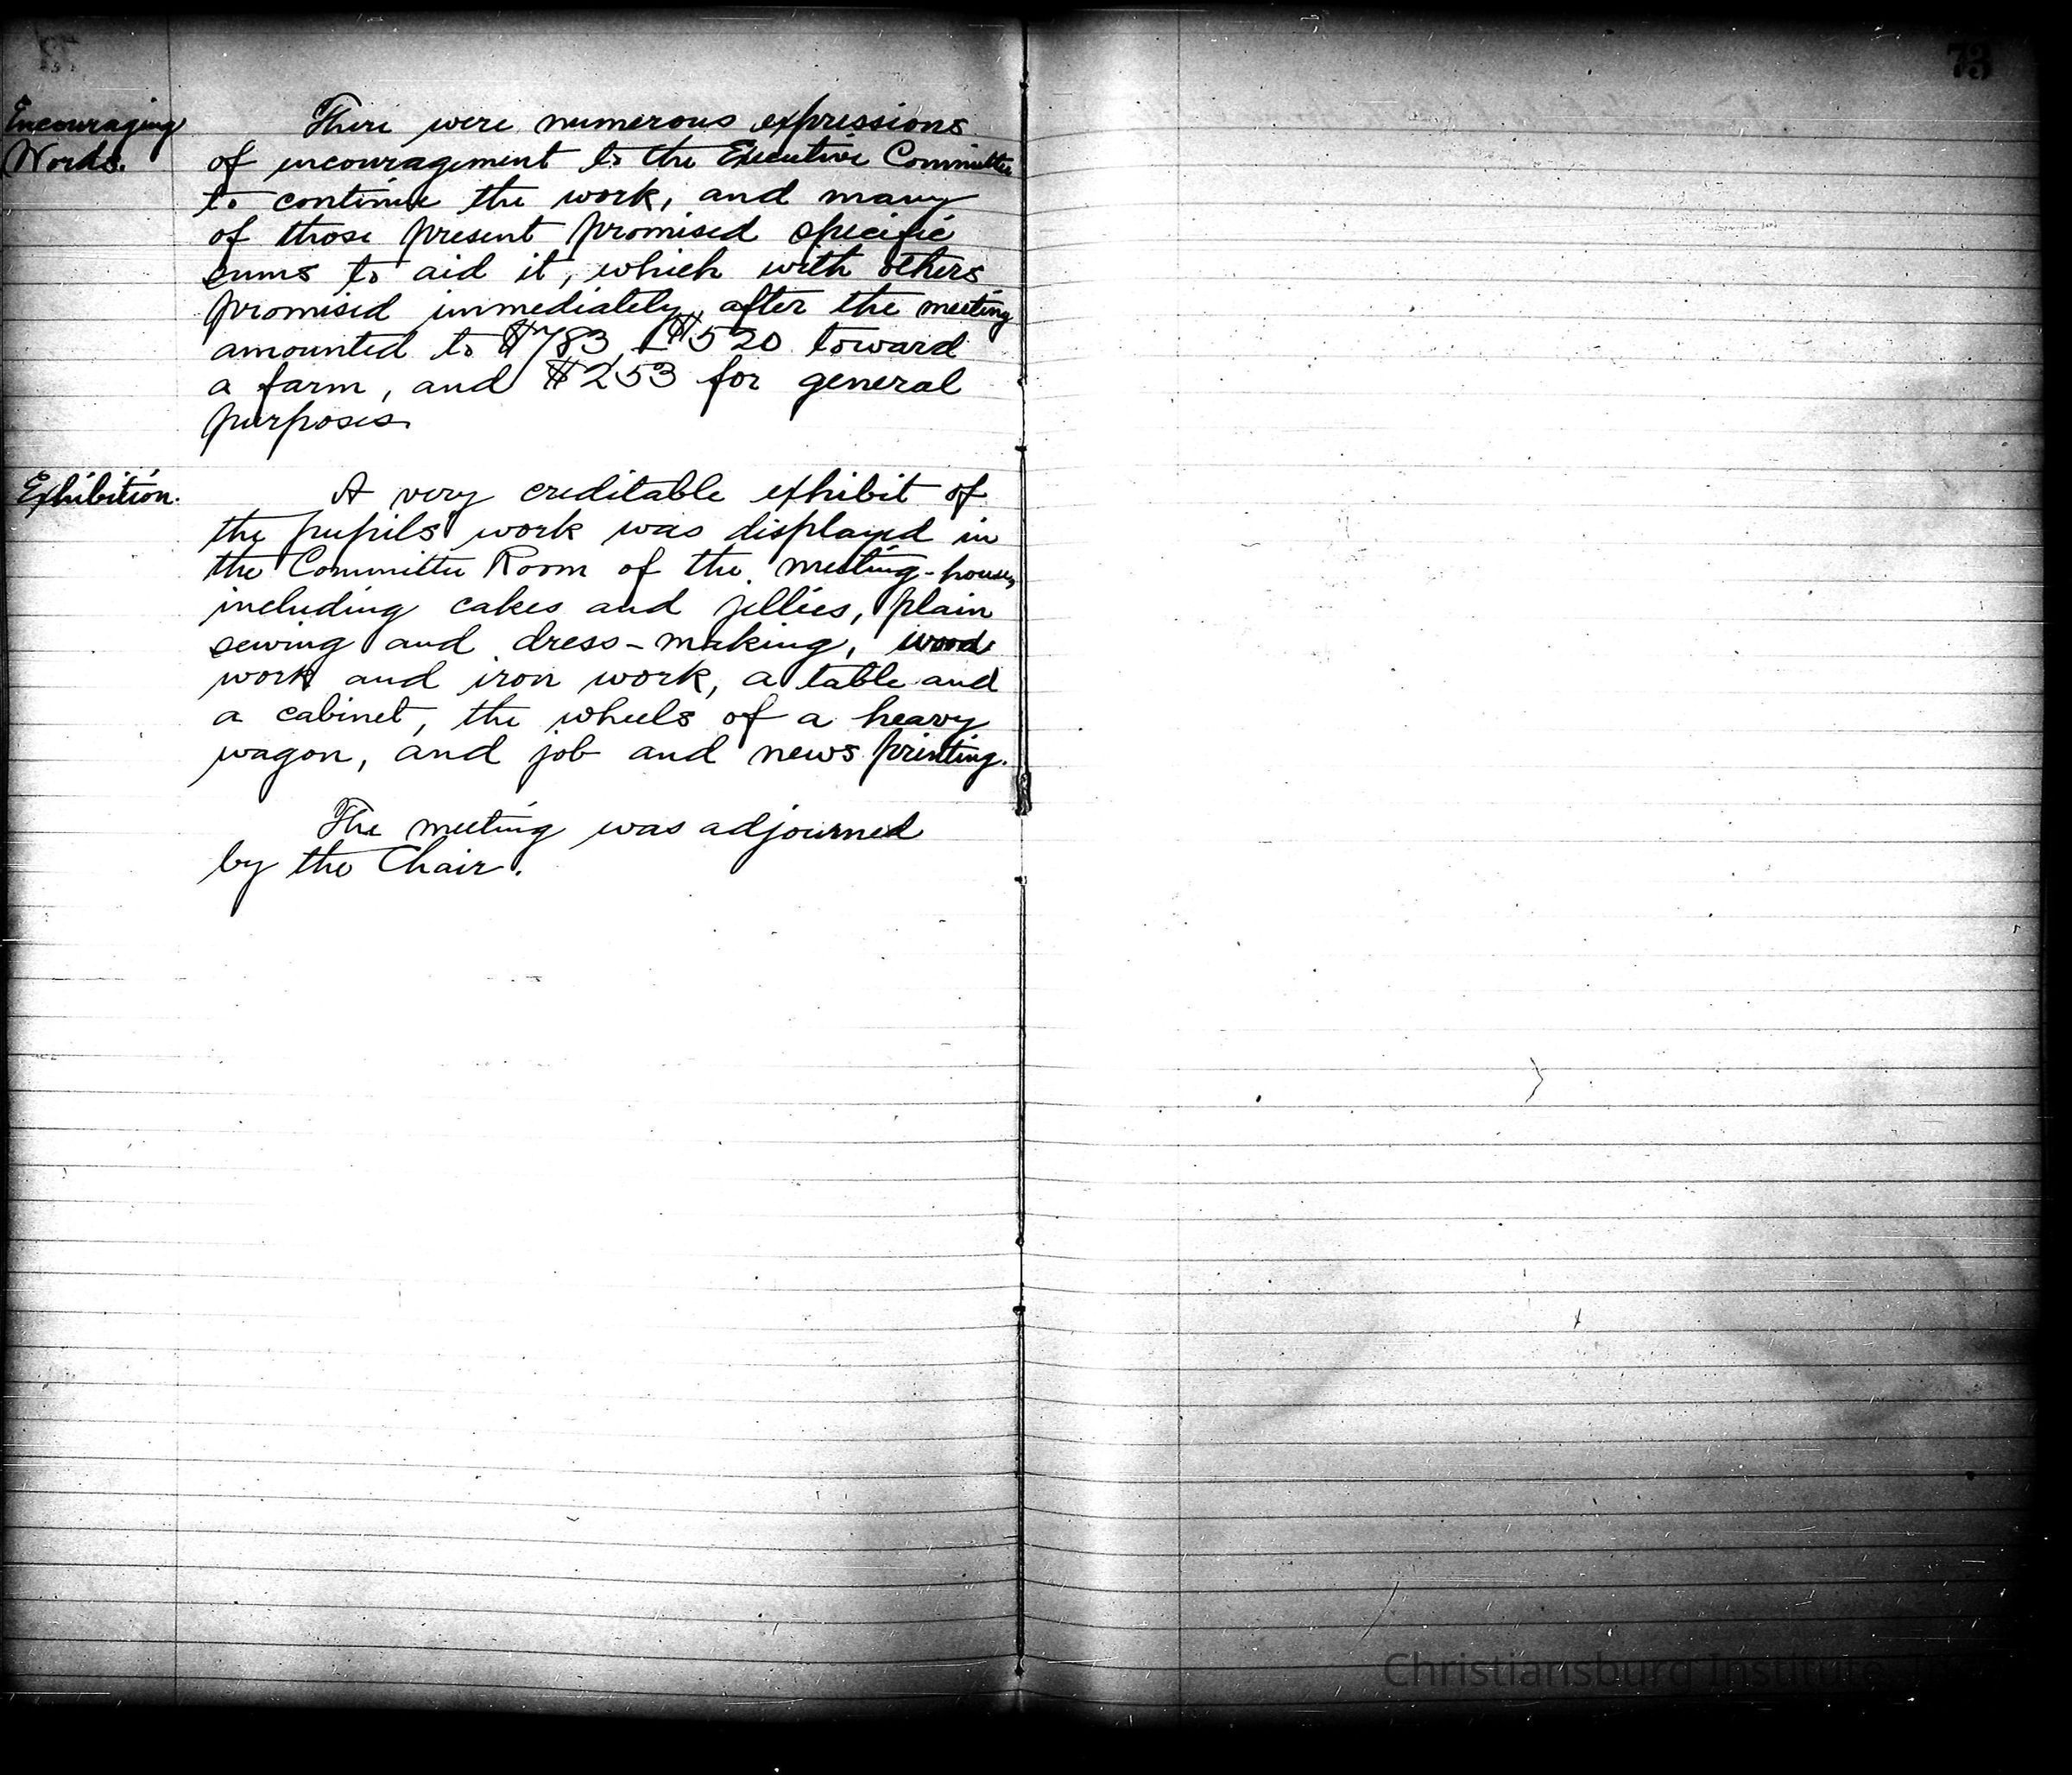 73
Encouraging
Words.
There were numerous expressions
of encouragement to the Executive Committee
to continue the work, and many
of those present promised specific
sums to aid it, which with others
promised immediately after the meeting
amounted to $783, - $520 toward
a farm, and $253 for general
purposes.
Exhibition.
A very creditable exhibit of
the pupils' work was displayed in
the Committee Room of the meeting-house,
including cakes and jellies, plain
sewing and dress-making, wood
work and iron work, a table and
a cabinet, the wheels of a heavy
wagon, and job and news printing.
The meeting was adjourned
by the Chair.
Christiansburg Institute